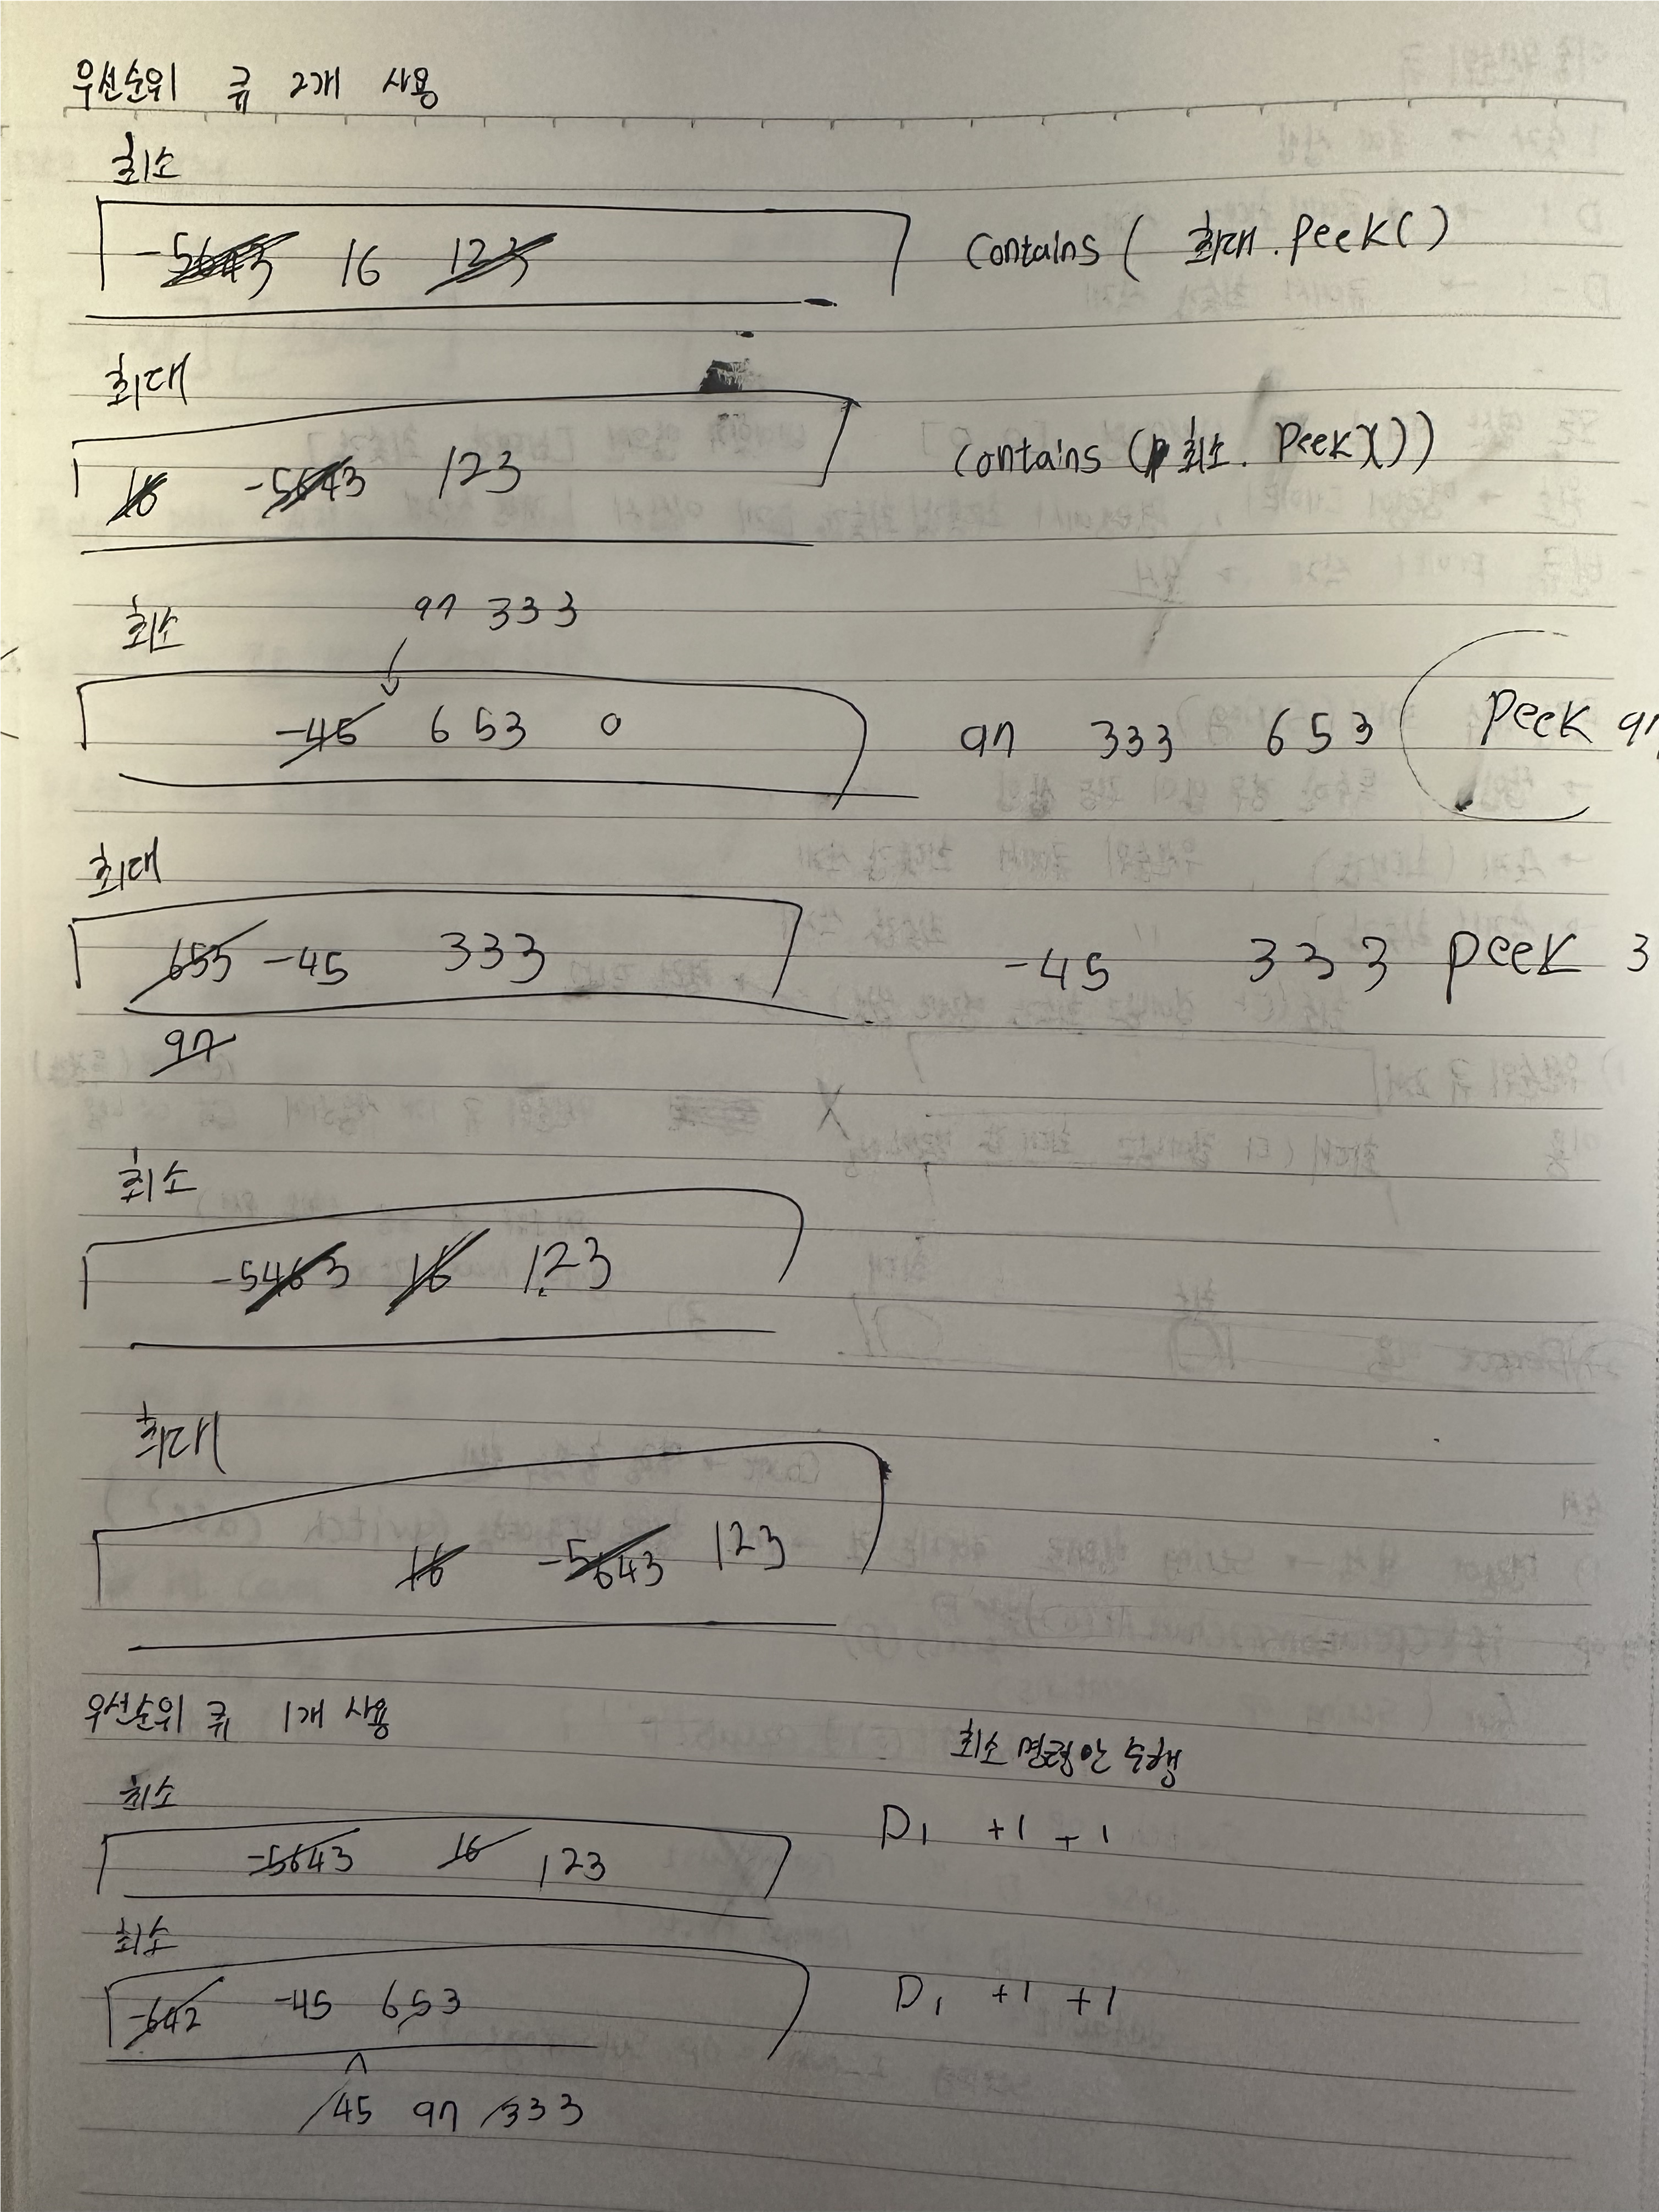 우선순위 큐 2개 사용
최소
-5643 16 123 contains ( 최대.peek()
최대
16 -5643 123 contains ( 최소. peek()))
최소 97 333
-45 653 0 97 333 653 peek 97
최대
653 -45 333 -45 333 peek 3
97
최소
-5463 16 123
최대
16 -5643 123
우선순위 큐 1개 사용
최소 명령안 수행
최소
-5643 16 123 D1 +1 -1
최소
-642 -45 653 D1 +1 +1
45 97 333